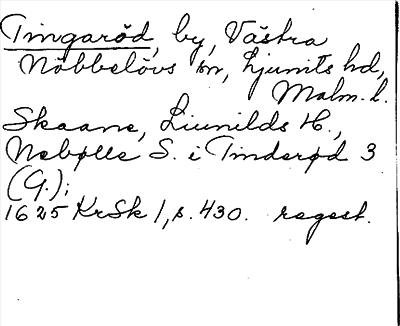 Tingaröd, by, Västra
Nöbbelövs sn, Ljunits hd,
Malm. l.
Skaane, Liunilds H.,
Nebølle S. i Tinderød 3
(G.);
1625 KrSk 1, s. 430. regest.